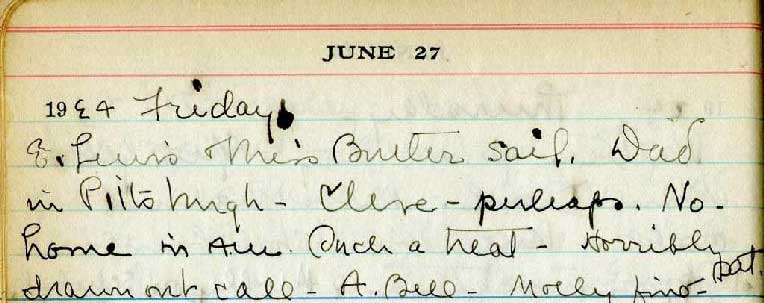 JUNE 27
1924 Friday
E. Lewis & Miss Butler sail. Dad
in Pittsburgh - Cleve - perhaps. No -
home in A.M. Such a treat - Horribly
drawn out call - A. Bell - Molly